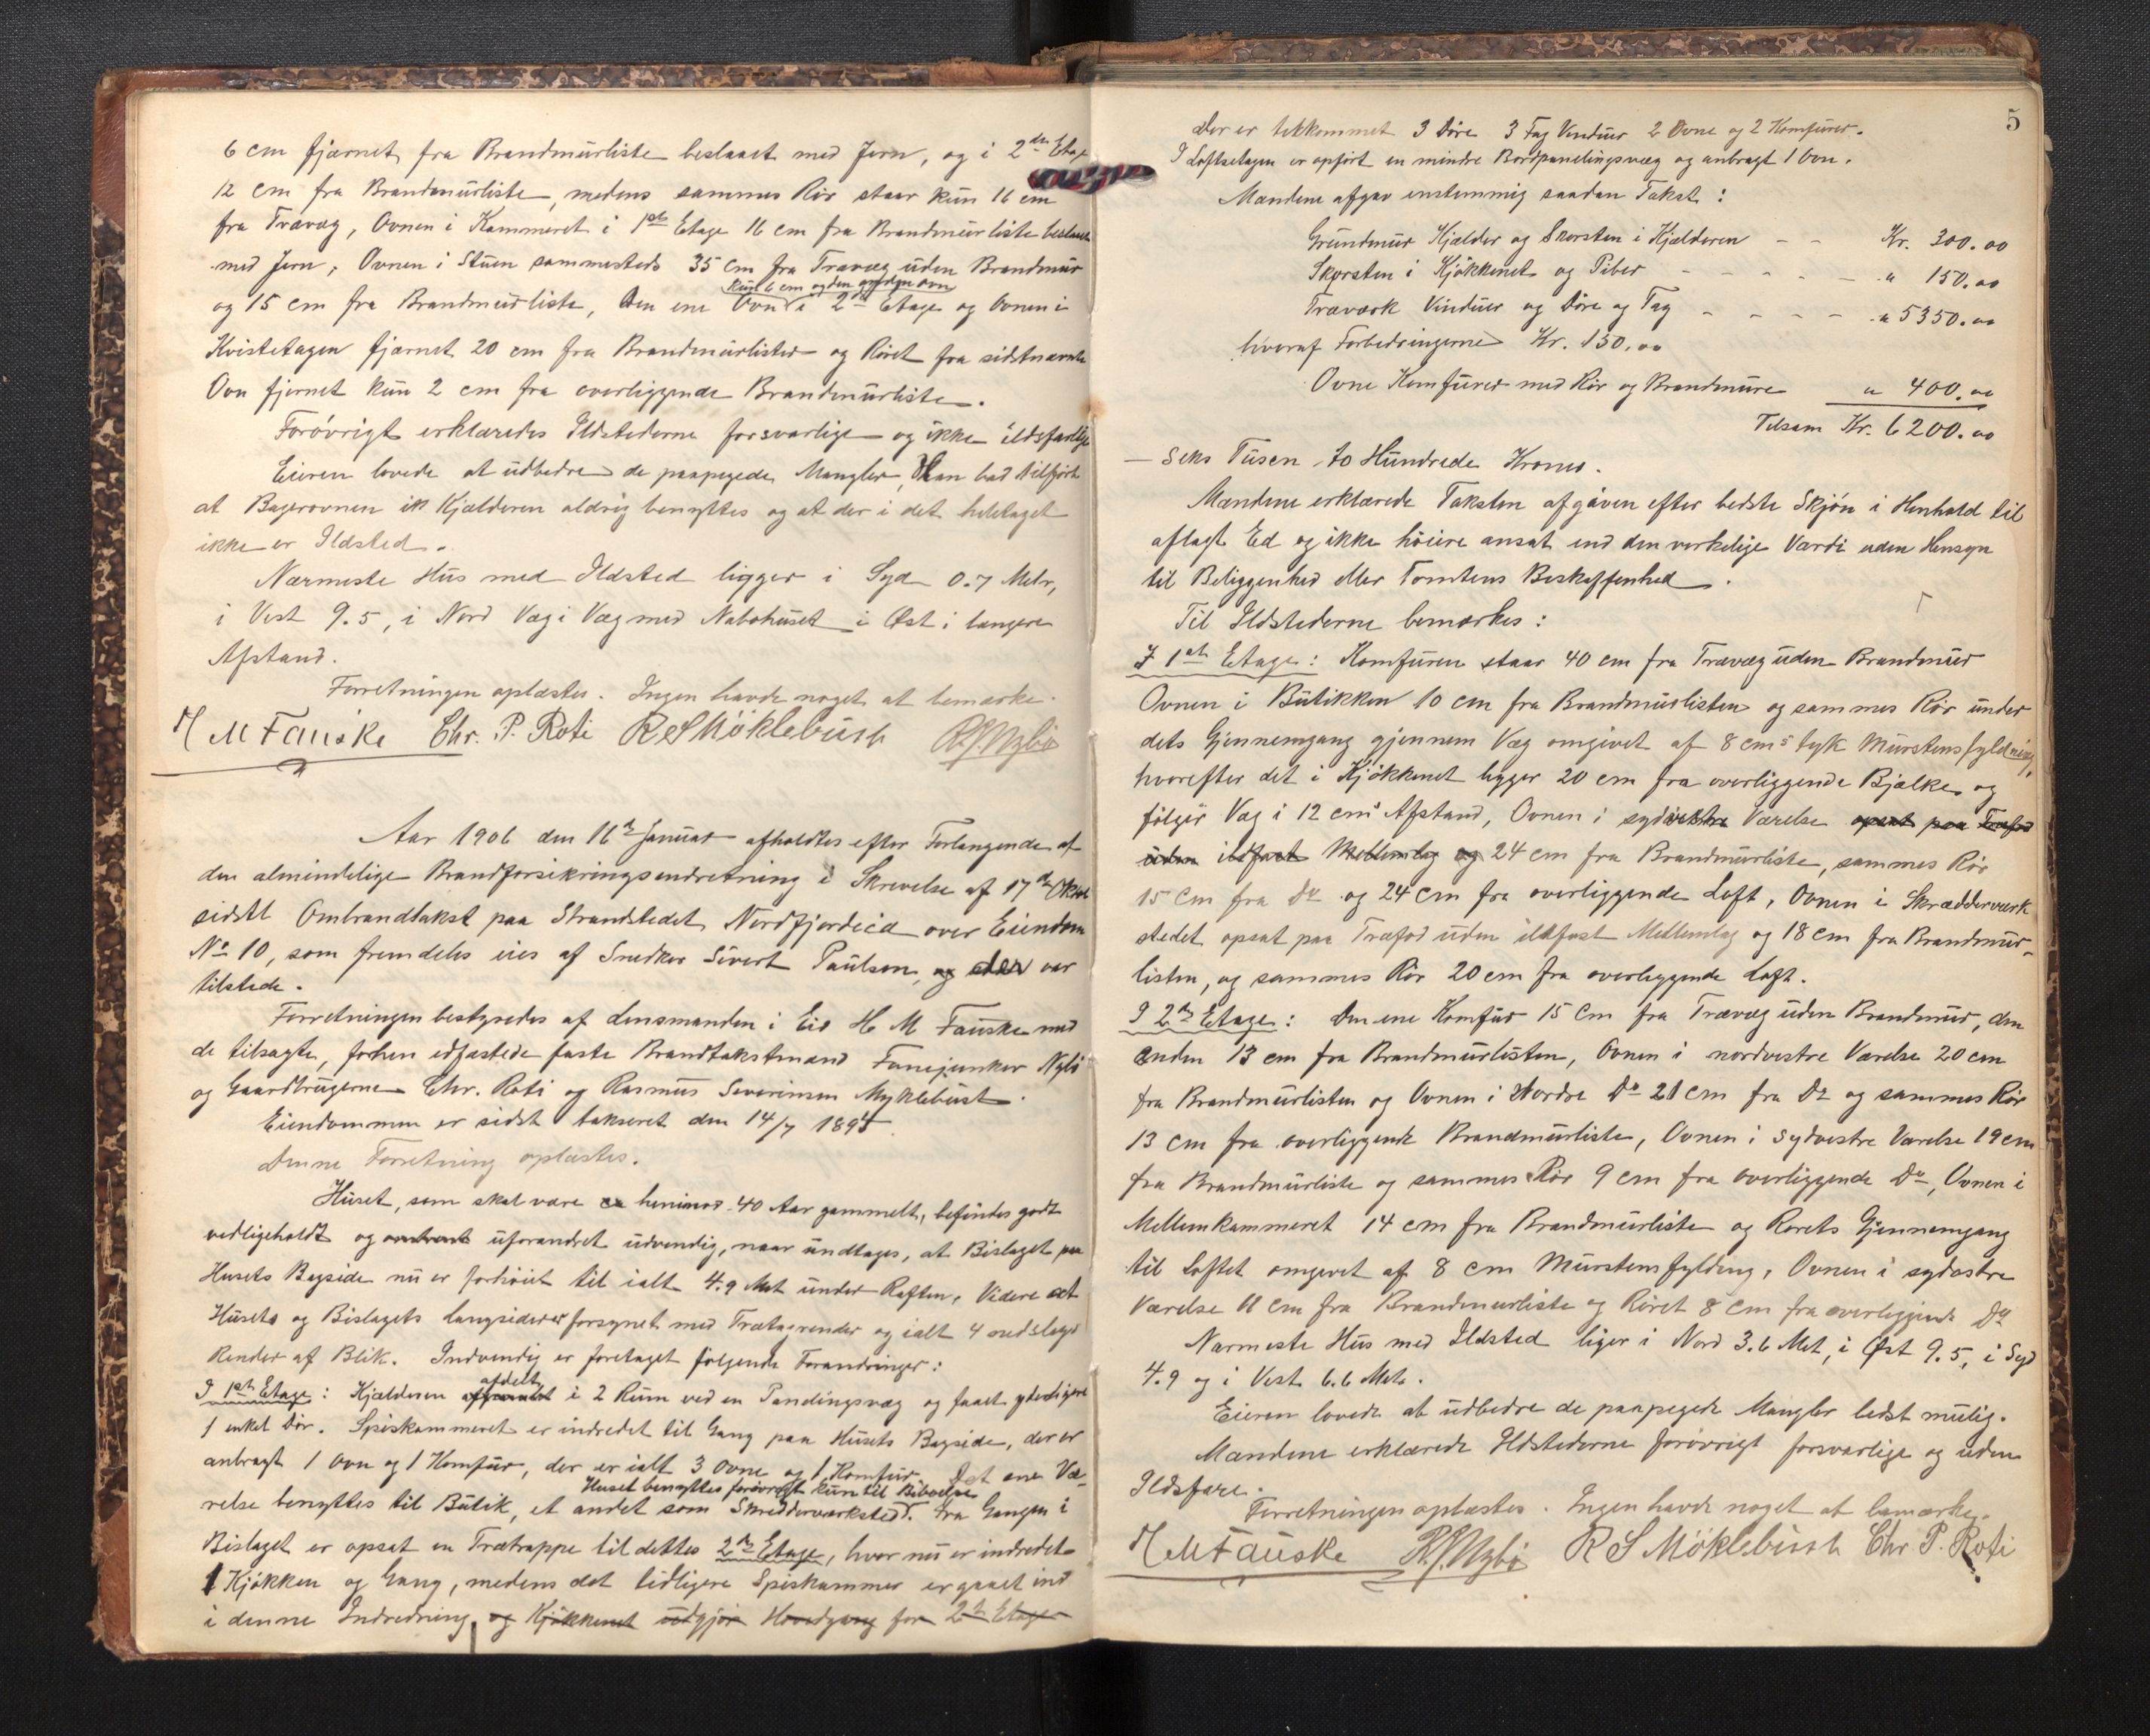 6 cm fjærnet fra Brandmürliste beslaaet med Jern, og i 2den Etage
12 cm fra Brandmürliste, medens sammes Rör staar kün 16 cm
fra Trævæg, Ovnen i Kammeret i 1ste Etage 16 cm fra Brandmürliste beslaaet
med Jern, Ovnen i Stüen sammesteds 35 cm fra Trævæg üden Brandmür
kün 6 cm og den
og 15 cm fra Brandmürliste, den ene Ovn i 2den Etage og Ovnen i
Kvistetagen fjærnet 20 cm fra Brandmürlister og Röret fra sidstnævnte
Ovn fjernet kün 2 cm fra overliggende Brandmürliste.
Forövrigt erklæredes Ildstederne forsvarlige og ikke ildsfarlige
Eieren lovede at üdbedre de paapegede Mangler, Han bad tilfört
at Bagerovnen i Kjælderen aldrig benyttes og at der i det heletaget
ikke er Ildsted.
Nærmeste Hüs med Ildsted ligger i Syd 0.7 Metr,
i Vest 9.5, i Nord Væg i Væg med Nabohüset i Øst i længere
Afstand.
Forretningen oplæstes. Ingen havde noget at bemærke.
H M Fauske Chr. P. Roti R S Möklebüst R. J. Nybö
Aar 1906 den 16de Janüar afholdtes efter Forlangende af
den almindelige Brandforsikringsindretning i Skrivelse af 17de Oktbr
sidstl Ombrandtakst paa Strandstedet Nordfjordeid over Eiendom
No 10, som fremdeles eies af Snedker Sivert Paülsen, og der var
tilstede.
Forretningen bestyredes af Lensmanden i Eid H M Fauske med
de tilsagte, forhen edfæstede faste Brandtakstmænd Fanejunker Nybö
og Gaardbrügerne Chr. Roti og Rasmüs Severinsen Myklebüst.
Eiendommen er sidst takseret den 14/7 1895
Denne Forretning oplæstes.
Hüset, som skal være ca henimod 40 Aar gammelt, befindes godt
vedligeholdt og omtrent üforandret üdvendig, naar ündtages, at Bislaget paa
Hüsets Bagside nü er forhöiet til ialt 4.9 Met ünder Raften. Videre at
Hüsets og Bislagets Langsider er forsynet med Trætagrender og ialt 4 nedslags
Render af Blik. Indvendig er foretaget følgende Forandringer:
afdelt
I 1ste Etage: Kjælderen i 2 Rüm ved en Panelingsvæg og faaet yderligere
1 enkel Dör. Spiskammeret er indredet til Gang paa Hüsets Bagside, der er
anbragt 1 Ovn og 1 Komfür, der er ialt 3 Ovne og 1 Komfür. Det ene Væ-
Hüset benyttes forövrigt kün til Beboelse
relse benyttes til Bütik, et andet som Skredderværksted. Fra Gangen i
Bislaget er opsat en Trætrappe til dettes 2den Etage, hvor nü er indredet
1 Kjökken og Gang, medens det tidligere Spiskammer er gaaet ind
i denne Indredning og Kjökkenet üdgjör Hovedgang for 2den Etage
5
Der er tilkommet 3 Döre 3 Fag Vindüer 2 Ovne og 2 Komfürer.
I Loftsetagen er opfört en mindre Bordpanelingsvæg og anbragt 1 Ovn.
Mændene afgav enstemmig saadan Takst:
Gründmür Kjælder og Skorsten i Kjælderen - - Kr. 300.00
Skorsten i Kjökkenet og Piber - - - - - " 150.00
Træværk Vindüer og Döre og Tag - - - - " 5350.00
hvoraf Forbedringerne Kr. 150.00
Ovne Komfürer med Rör og Brandmüre " 400.00
Tilsam Kr. 6200.00
- Seks Tüsen to Hündrede Kroner.
Mændene erklærede Taksten afgiven efter bedste Skjön i Henhold til
aflagt Ed og ikke höiere ansat end den verkelige Værdi uden Hensyn
til Beliggenhed eller Tomtens Beskaffenhed.
Til Ildstederne bemærkes:
I 1ste Etage: Komfüren staar 40 cm fra Trævæg üden Brandmür
Ovnen i Bütikken 10 cm fra Brandmürlisten og sammes Rör ünder
dets Gjennemgang gjennem Væg omgivet af 8 cms tyk Mürstensfyldning,
hvorefter det i Kjökkenet ligger 20 cm fra overliggende Bjælke og
fölger Væg i 12 cms Afstand, Ovnen i sydvestre Værelse opsat paa Træfod
üden ildfast Mellemlag og 24 cm fra Brandmürliste, sammes Rör
15 cm fra Do og 24 cm fra overliggende Loft, Ovnen i Skrædderværk
stedet opsat paa Træfod üden ildfast Mellemlag og 18 cm fra Brandmür-
listen, og sammes Rör 20 cm fra overliggende Loft.
I 2den Etage: Den ene Komfür 15 cm fra Trævæg üden Brandmür, den
anden 13 cm fra Brandmürlisten, Ovnen i nordvestre Værelse 20 cm
fra Brandmürlisten og Ovnen i Nordre Do 21 cm fra Do og sammes Rör
13 cm fra overliggende Brandmürliste, Ovnen i sydvestre Værelse 19 cm
fra Brandmürliste og sammes Rör 9 cm fra overliggende Do, Ovnen i
Mellemkammeret 14 cm fra Brandmürliste og Rörets Gjennemgang
til Loftet omgivet af 8 cm Mürstensfylding, Ovnen i sydöstre
Værelse 11 cm fra Brandmurliste og Röret 8 cm fra overliggende Do
Nærmeste Hüs med Ildsted liger i Nord 3.6 Met, i Øst 9.5, i Syd
4.9 og i Vest 6.6 Met.
Eieren lovede at üdbedre de paapegede Mangler bedst mülig.
Mændene erklærede Ildstederne forövrigt forsvarlige og uden
Ildsfare.
Forretningen oplæstes. Ingen havde noget at bemærke.
H M Fauske R. J. Nybö R S Möklebüst Chr P. Roti